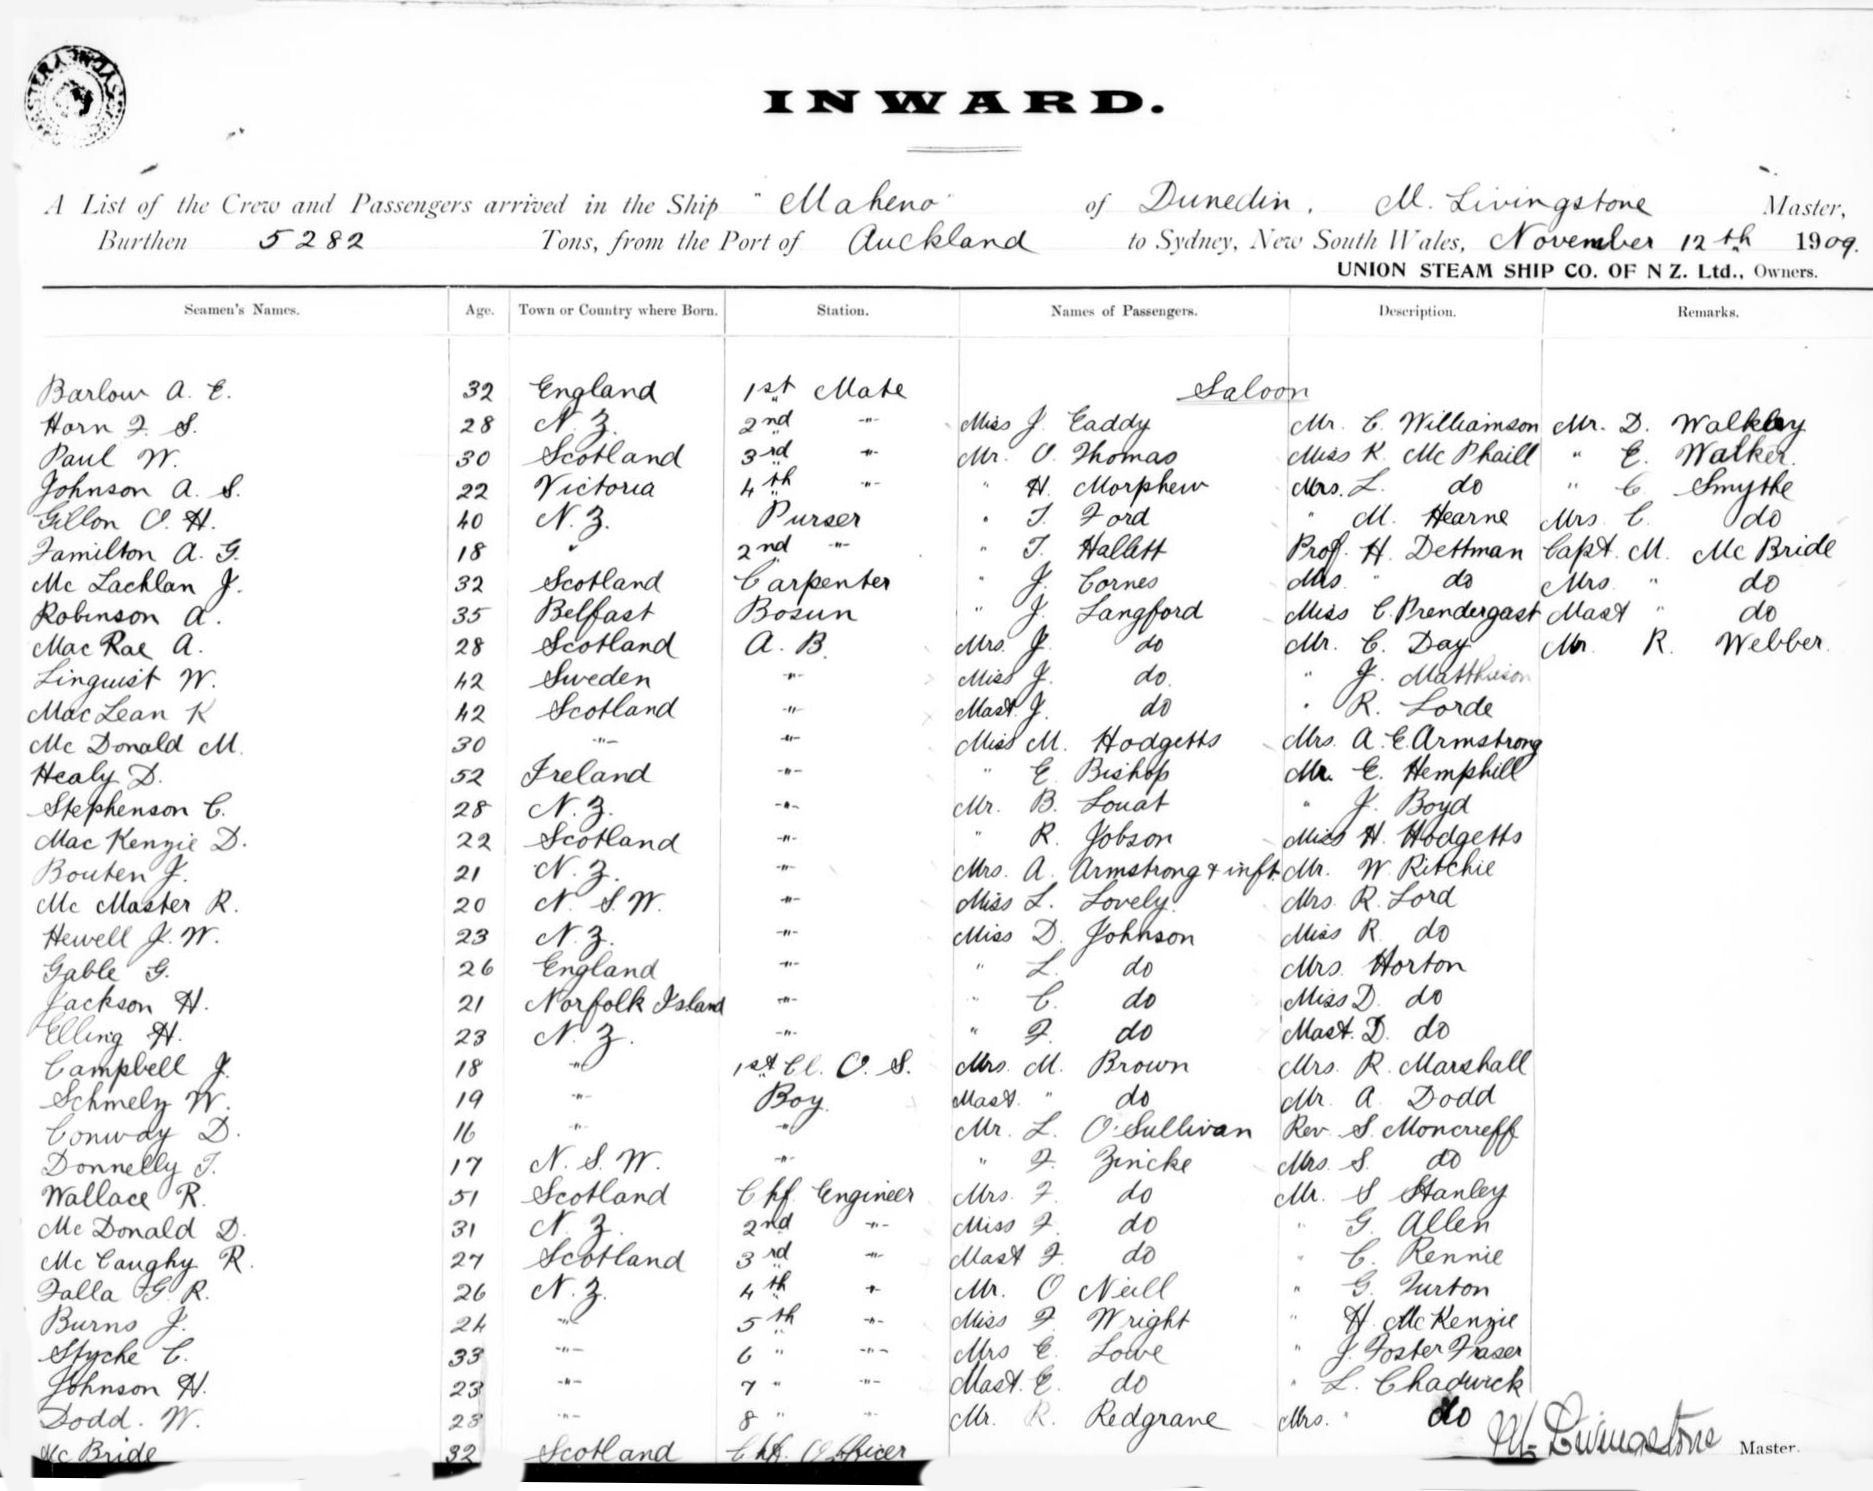 INWARD.
A List of the Crew and Passengers arrived in the Ship "Maheno" of Dunedin, M. Livingstone Master,
Burthen 5282 Tons, from the Port of Auckland to Sydney, New South Wales, November 12th 1909.
UNION STEAM SHIP CO. OF N Z. Ltd., Owners.
Seamen's Names. Age. Town or Country where Born. Station. Names of Passengers. Description. Remarks.
Barlow A. E. 32 England 1st Mate Saloon
Horn F. S. 28 N. Z. 2nd -"- Miss J. Eaddy Mr. C. Williamson Mr. D. Walkley
Paul W. 30 Scotland 3rd -"- Mr. O. Thomas Miss K. McPhaill " E. Walker.
Johnson A. S. 22 Victoria 4th -"- " H. Morphew Mrs. L. do " C. Smythe
Gillon O. H. 40 N. Z. Purser " T. Ford " M. Hearne Mrs. C. do
Familton A. G. 18 " 2nd -"- " T. Hallett Prof. H. Dettman Capt. M. McBride
Mc Lachlan J. 32 Scotland Carpenter " J. Cornes Mrs. " do Mrs. " do
Robinson A. 35 Belfast Bosun " J. Langford Miss C. Prendergast Mast " do
Mac Rae A. 28 Scotland A. B. Mrs. J. do Mr. C. Day Mr. R. Webber.
Linquist W. 42 Sweden -"- Miss J. do. " J. Matthieson
MacLean K 42 Scotland -"- Mast. J. do " R. Lorde
Mc Donald M. 30 -"- -"- Miss M. Hodgetts Mrs. A. E. Armstrong
Healy D. 52 Ireland -"- " E. Bishop Mr. E. Hemphill
Stephenson C. 28 N. Z. -"- Mr. B. Louat " J. Boyd
Mac Kenzie D. 22 Scotland -"- " R. Jobson Miss H. Hodgetts
Bouten J. 21 N. Z. -"- Mrs. A. Armstrong + inft. Mr. W. Ritchie
Mc Master R. 20 N. S. W. -"- Miss L. Lovely. Mrs. R. Lord
Hewell J. W. 23 N. Z. -"- Miss D. Johnson Miss R. do
Gable G. 26 England -"- " L. do Mrs. Horton
Jackson H. 21 Norfolk Island -"- " C. do Miss D. do
Elling H. 23 N. Z. -"- " F. do Mast. D. do
Campbell J. 18 -"- 1st Cl. O. S. Mrs. M. Brown Mrs. R. Marshall
Schmelz W. 19 -"- Boy. Mast. " do Mr. A. Dodd
Conway D. 16 -"- -"- Mr. L. O'Sullivan Rev. S. Moncrieff
Donnelly T. 17 N. S. W. -"- " F. Zincke Mrs. S. do
Wallace R. 51 Scotland Chf. Engineer Mrs. F. do Mr. S Stanley
Mc Donald D. 31 N. Z. 2nd -"- Miss F. do " G. Allen
Mc Caughy R. 27 Scotland 3rd -"- Mast F. do " C. Rennie
Falla G. R. 26 N. Z. 4th -"- Mr. O Neill " G. Turton
Burns J. 24 -"- 5th -"- Miss F. Wright " H. McKenzie
Styche C. 33 -"- 6 " -"- Mrs E. Lowe " J. Foster Fraser
Johnson H. 23 -"- 7 " -"- Mast. E. do " L. Chadwick
Dodd. W. 23 -"- 8 " -"- Mr. R. Redgrane Mrs. " do
M. Livingstone Master.
Mc Bride 32 Scotland Chf. Officer